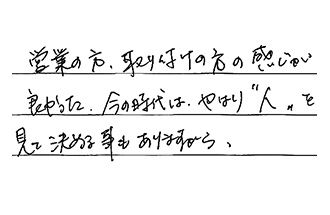 営業の方、取り付けの方の感じが
良かった。今の時代は、やはり〝人〟を
見て決める事もありますから、